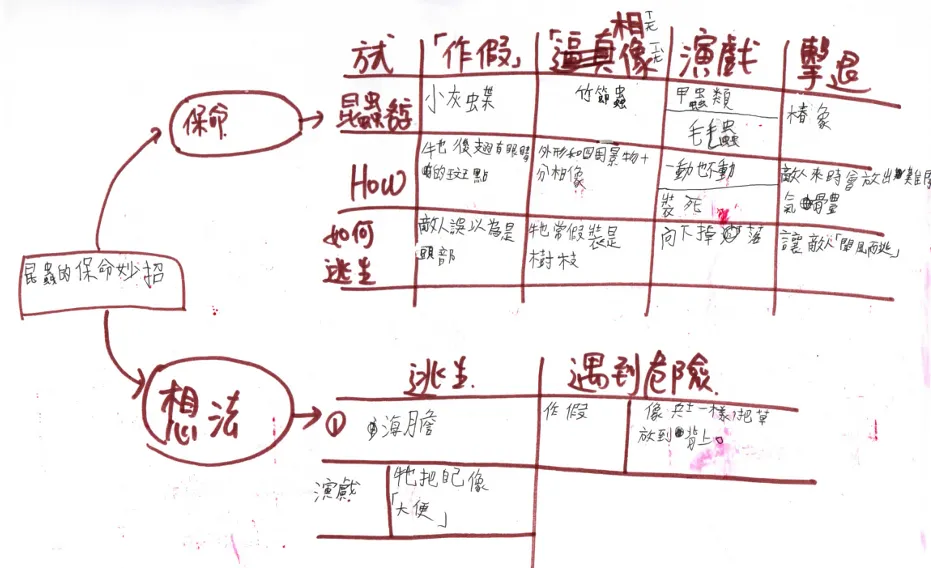 昆蟲的保命妙招
保命
方式
「作假」
「相像
演戲
擊退
昆蟲
小灰虫葉
竹節蟲
甲蟲類
毛毛蟲
椿象
How
牠後翅有眼睛
的斑點
外形和四周景物十
分相像
一動也不動
裝死
敵人來時會放出難聞
氣
如何
逃生
敵人誤以為是
頭部
牠常假裝是
樹枝
向下掉落
讓敵人「聞風而逃」
想法
逃生
遇到危險
①
海膽
作假
放到背上。
演戲
牠把自己像
「大便」